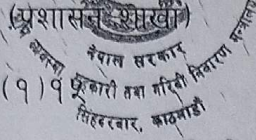 (प्रशासन शाखा)
नेपाल सरकार
सहकारी तथा गरिबी निवारण मन्त्रालय
(१)
सिंहदरबार, काठमाडौं